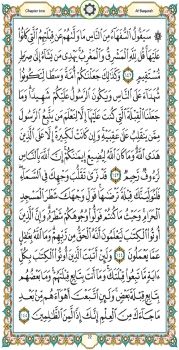 Chapter two
Al Baqarah
سَيَقُولُ ٱلسُّفَهَآءُ مِنَ ٱلنَّاسِ مَا وَلَّىٰهُمْ عَن قِبْلَتِهِمُ ٱلَّتِى كَانُوا۟
عَلَيْهَا ۚ قُل لِّلَّهِ ٱلْمَشْرِقُ وَٱلْمَغْرِبُ ۚ يَهْدِى مَن يَشَآءُ إِلَىٰ صِرَٰطٍ
مُّسْتَقِيمٍ ١٤٢ وَكَذَٰلِكَ جَعَلْنَٰكُمْ أُمَّةً وَسَطًا لِّتَكُونُوا۟
شُهَدَآءَ عَلَى ٱلنَّاسِ وَيَكُونَ ٱلرَّسُولُ عَلَيْكُمْ شَهِيدًا ۗ وَمَا
جَعَلْنَا ٱلْقِبْلَةَ ٱلَّتِى كُنتَ عَلَيْهَآ إِلَّا لِنَعْلَمَ مَن يَتَّبِعُ ٱلرَّسُولَ
مِمَّن يَنقَلِبُ عَلَىٰ عَقِبَيْهِ ۚ وَإِن كَانَتْ لَكَبِيرَةً إِلَّا عَلَى ٱلَّذِينَ
هَدَى ٱللَّهُ ۗ وَمَا كَانَ ٱللَّهُ لِيُضِيعَ إِيمَٰنَكُمْ ۚ إِنَّ ٱللَّهَ بِٱلنَّاسِ
لَرَءُوفٌ رَّحِيمٌ ١٤٣ قَدْ نَرَىٰ تَقَلُّبَ وَجْهِكَ فِى ٱلسَّمَآءِ ۖ
فَلَنُوَلِّيَنَّكَ قِبْلَةً تَرْضَىٰهَا ۚ فَوَلِّ وَجْهَكَ شَطْرَ ٱلْمَسْجِدِ
ٱلْحَرَامِ ۚ وَحَيْثُ مَا كُنتُمْ فَوَلُّوا۟ وُجُوهَكُمْ شَطْرَهُۥ ۗ وَإِنَّ ٱلَّذِينَ
أُوتُوا۟ ٱلْكِتَٰبَ لَيَعْلَمُونَ أَنَّهُ ٱلْحَقُّ مِن رَّبِّهِمْ ۗ وَمَا ٱللَّهُ بِغَٰفِلٍ
عَمَّا يَعْمَلُونَ ١٤٤ وَلَئِنْ أَتَيْتَ ٱلَّذِينَ أُوتُوا۟ ٱلْكِتَٰبَ بِكُلِّ
ءَايَةٍ مَّا تَبِعُوا۟ قِبْلَتَكَ ۚ وَمَآ أَنتَ بِتَابِعٍ قِبْلَتَهُمْ ۚ وَمَا بَعْضُهُم
بِتَابِعٍ قِبْلَةَ بَعْضٍ ۚ وَلَئِنِ ٱتَّبَعْتَ أَهْوَآءَهُم مِّنۢ بَعْدِ
مَا جَآءَكَ مِنَ ٱلْعِلْمِ ۙ إِنَّكَ إِذًا لَّمِنَ ٱلظَّٰلِمِينَ ١٤٥